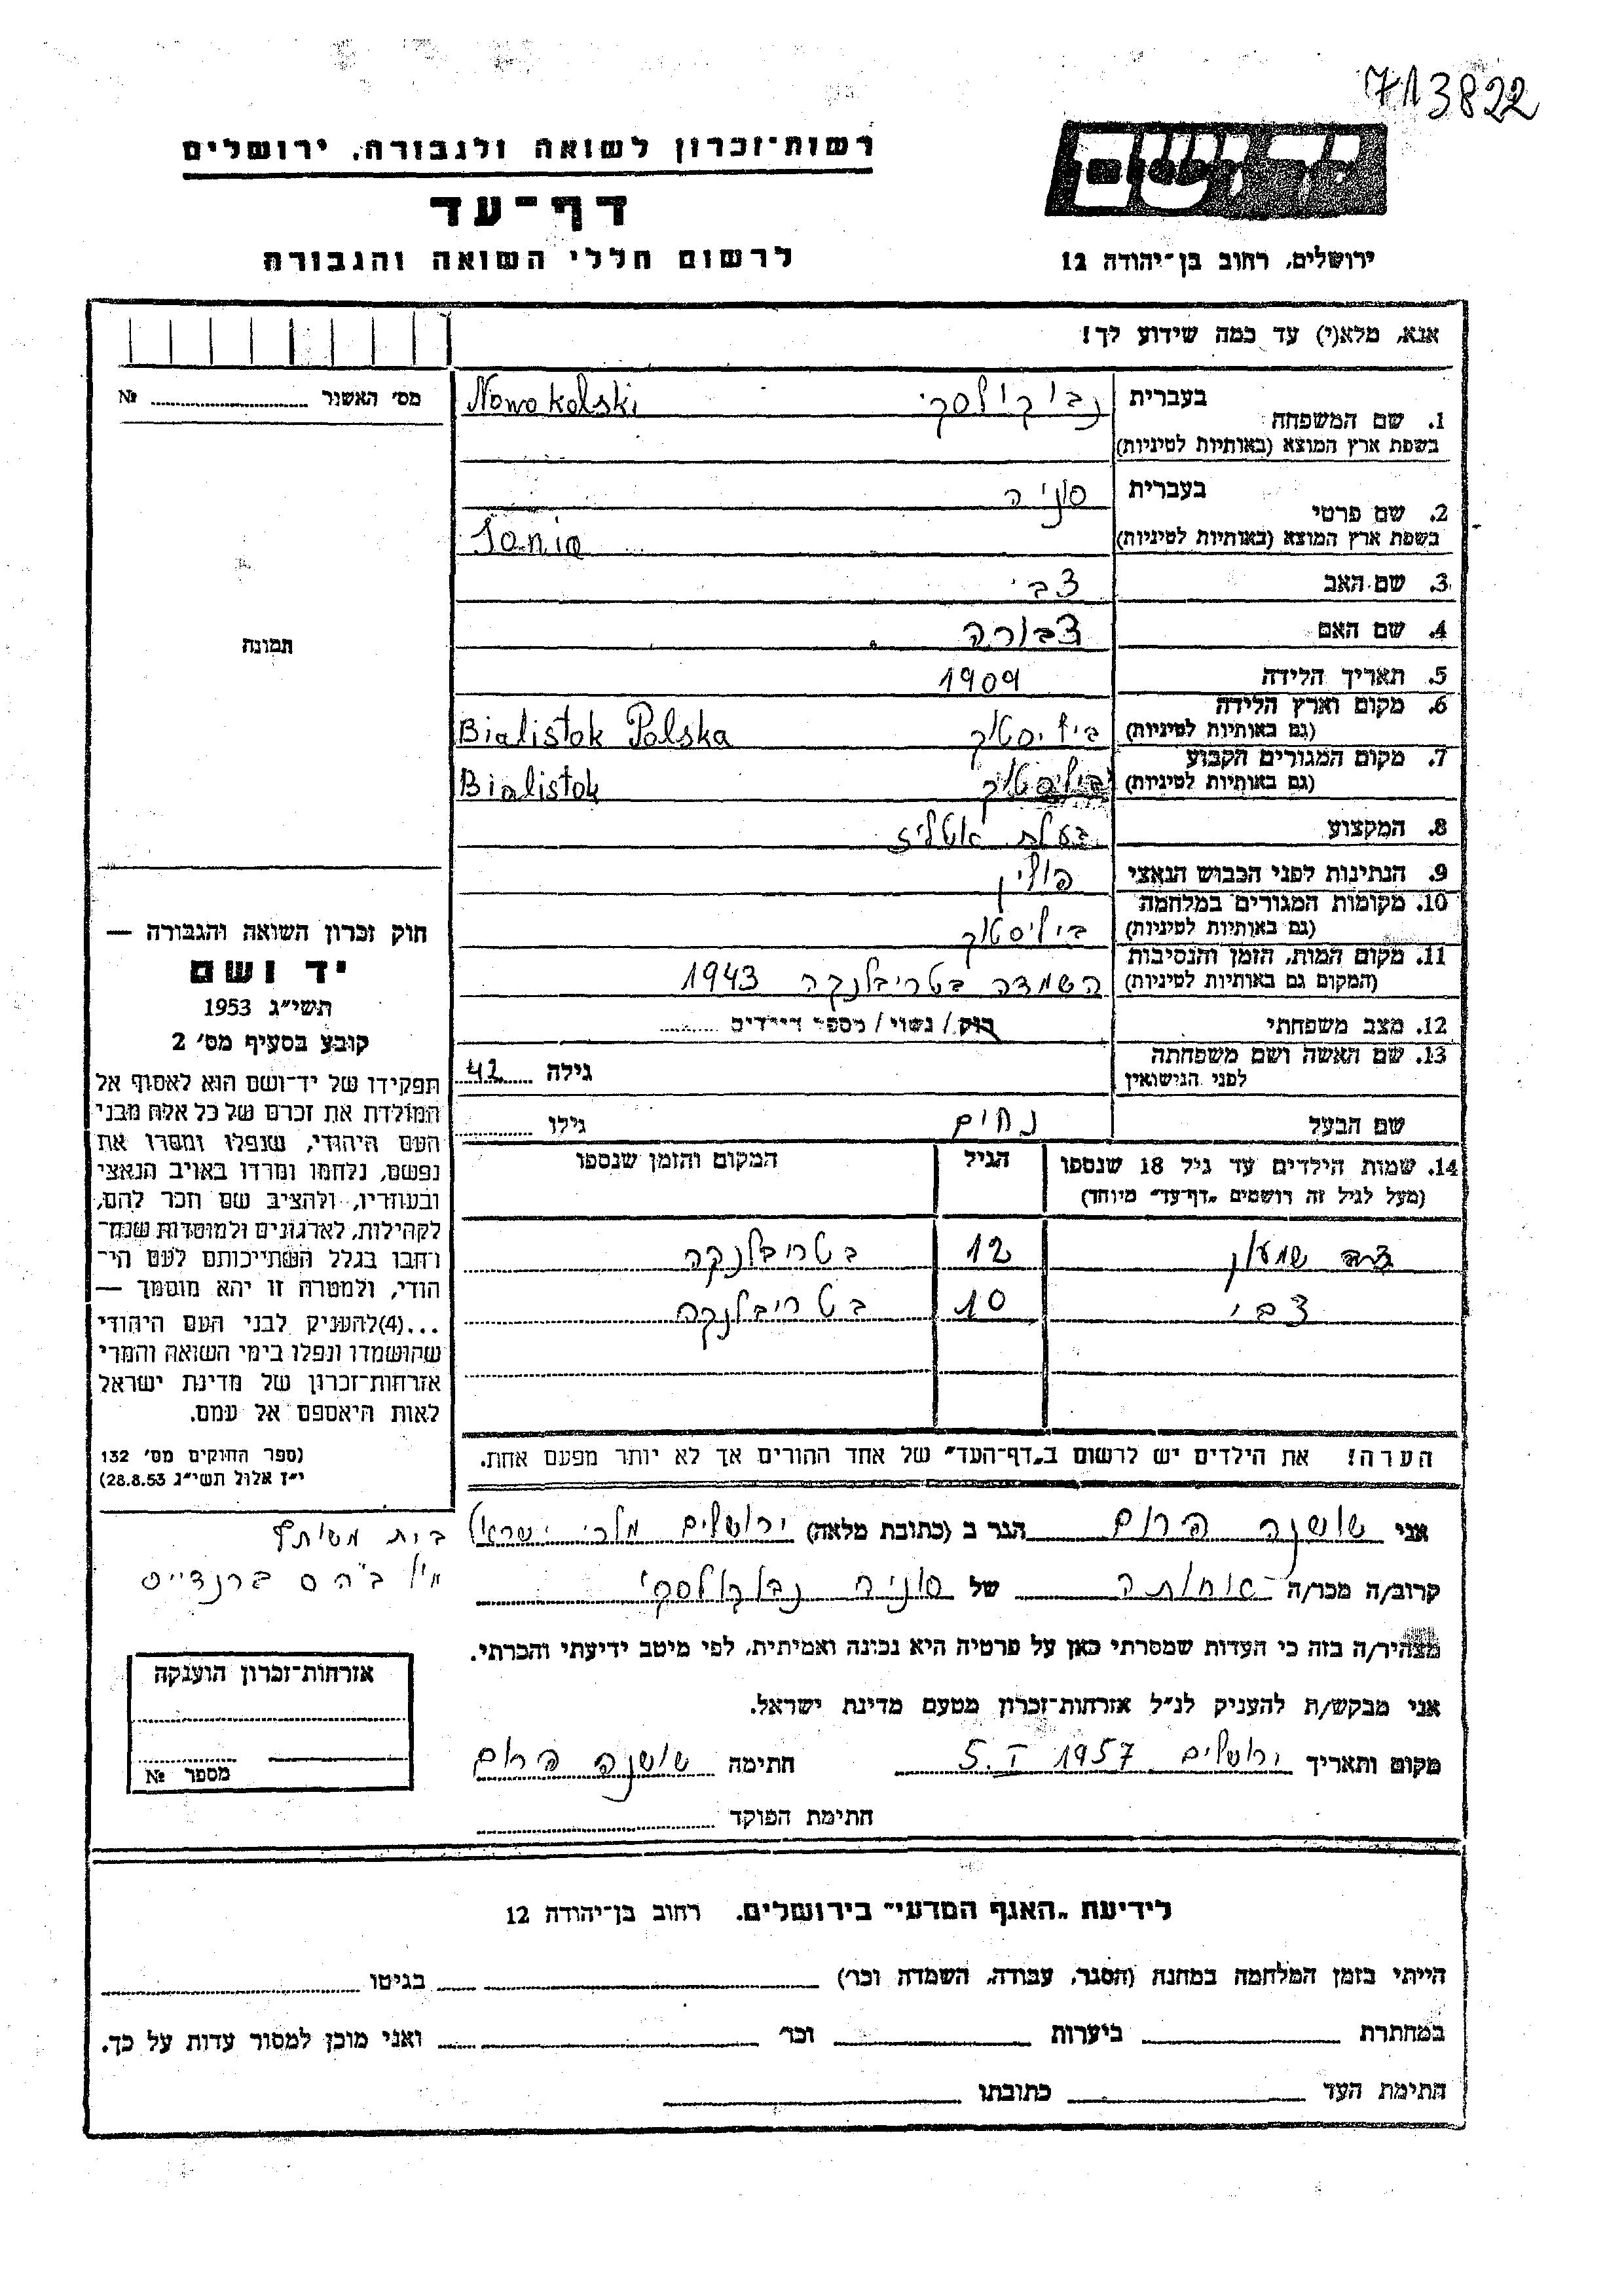 713822
יד ושם
רשות־זכרון לשואה ולגבורה, ירושלים
דף־עד
לרשום חללי השואה והגבורה
ירושלים, רחוב בן־יהודה 12
אנא, מלא(י) עד כמה שידוע לך!
מס׳ האשנר ........ №
1. שם המשפחה
בעברית נבוקולסקי Nowokolski
בשפת ארץ המוצא (באותיות לטיניות)
2. שם פרטי
בעברית סוניה
בשפת ארץ המוצא (באותיות לטיניות) Sonia
3. שם האב צבי
4. שם האם צבורה
5. תאריך הלידה 1909
6. מקום וארץ הלידה
(גם באותיות לטיניות) ביליסטוק Bialistok Polska
7. מקום המגורים הקבוע
(גם באותיות לטיניות) ביליסטוק Bialistok
8. המקצוע בעלת אטליז
9. הנתינות לפני הכבוש הנאצי פולין
10. מקומות המגורים במלחמה
(גם באותיות לטיניות) ביליסטוק
11. מקום המות, הזמן והנסיבות
(המקום גם באותיות לטיניות) השמדה בטריבלנקה 1943
12. מצב משפחתי רוק / נשוי / מספר הילדים ........
13. שם האשה ושם משפחתה
לפני הנישואין גילה 42
שם הבעל נחום גילו ........
14. שמות הילדים עד גיל 18 שנספו הגיל המקום והזמן שנספו
(מעל לגיל זה רושמים „דף־עד” מיוחד)
שמעון 12 בטריבלנקה
צבי 10 בטריבלנקה
הערה! את הילדים יש לרשום ב„דף־העד” של אחד ההורים אך לא יותר מפעם אחת.
תמונה
חוק זכרון השואה והגבורה —
יד ושם
תשי״ג 1953
קובע בסעיף מס׳ 2
תפקידו של יד־ושם הוא לאסוף אל
המולדת את זכרם של כל אלה מבני
העם היהודי, שנפלו ומסרו את
נפשם, נלחמו ומרדו באויב הנאצי
ובעוזריו, ולהציב שם וזכר להם,
לקהילות, לארגונים ולמוסדות שנח־
רחבו בגלל השתייכותם לעם הי־
הודי, ולמטרה זו יהא מוסמך —
...(4)להעניק לבני העם היהודי
שהושמדו ונפלו בימי השואה והמרי
אזרחות־זכרון של מדינת ישראל
לאות היאספם אל עמם.
(ספר החוקים מס׳ 132
י״ז אלול תשי״ג 28.8.53)
אני שושנה הרום הגר ב (כתובת מלאה) ירושלים מלכי ישראל
בית משותף
קרוב/ה מכר/ה אחותה של סוניה נבוקולסקי
מצהיר/ה בזה כי העדות שמסרתי כאן על פרטיה היא נכונה ואמיתית, לפי מיטב ידיעתי והכרתי.
אני מבקש/ת להעניק לנ״ל אזרחות־זכרון מטעם מדינת ישראל.
מקום ותאריך ירושלים 5.I 1957 חתימה שושנה הרום
חתימת הפוקד
אזרחות־זכרון הוענקה
מספר №
לידיעת „האגף המדעי” בירושלים. רחוב בן־יהודה 12
הייתי בזמן המלחמה במחנה (הסגר, עבודה, השמדה וכר׳) ........ בגיטו ........
במחתרת ........ ביערות ........ וכר׳ ........ ואני מוכן למסור עדות על כך.
חתימת העד ........ כתובתו ........